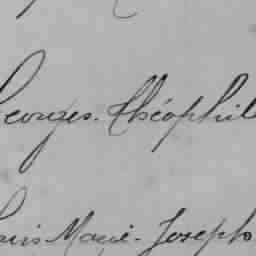 Georges. Théophil
Louis Marie-Joseph